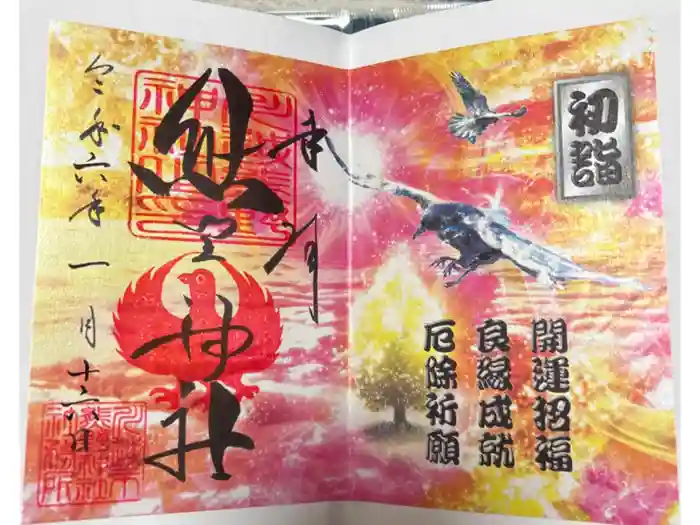 初詣
開運招福
良縁成就
厄除祈願
奉拝
熊野神社
令和六年一月十六日